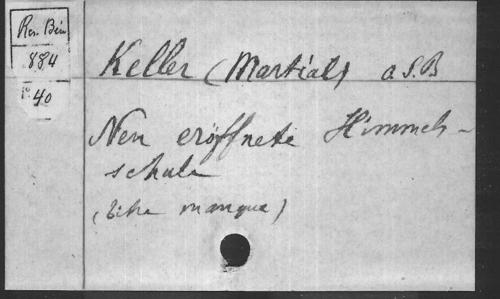 Res. Bén
884
40
Keller (Martial) O.S.B
Neu eröffnete Himmels-
schule
(titre manque)